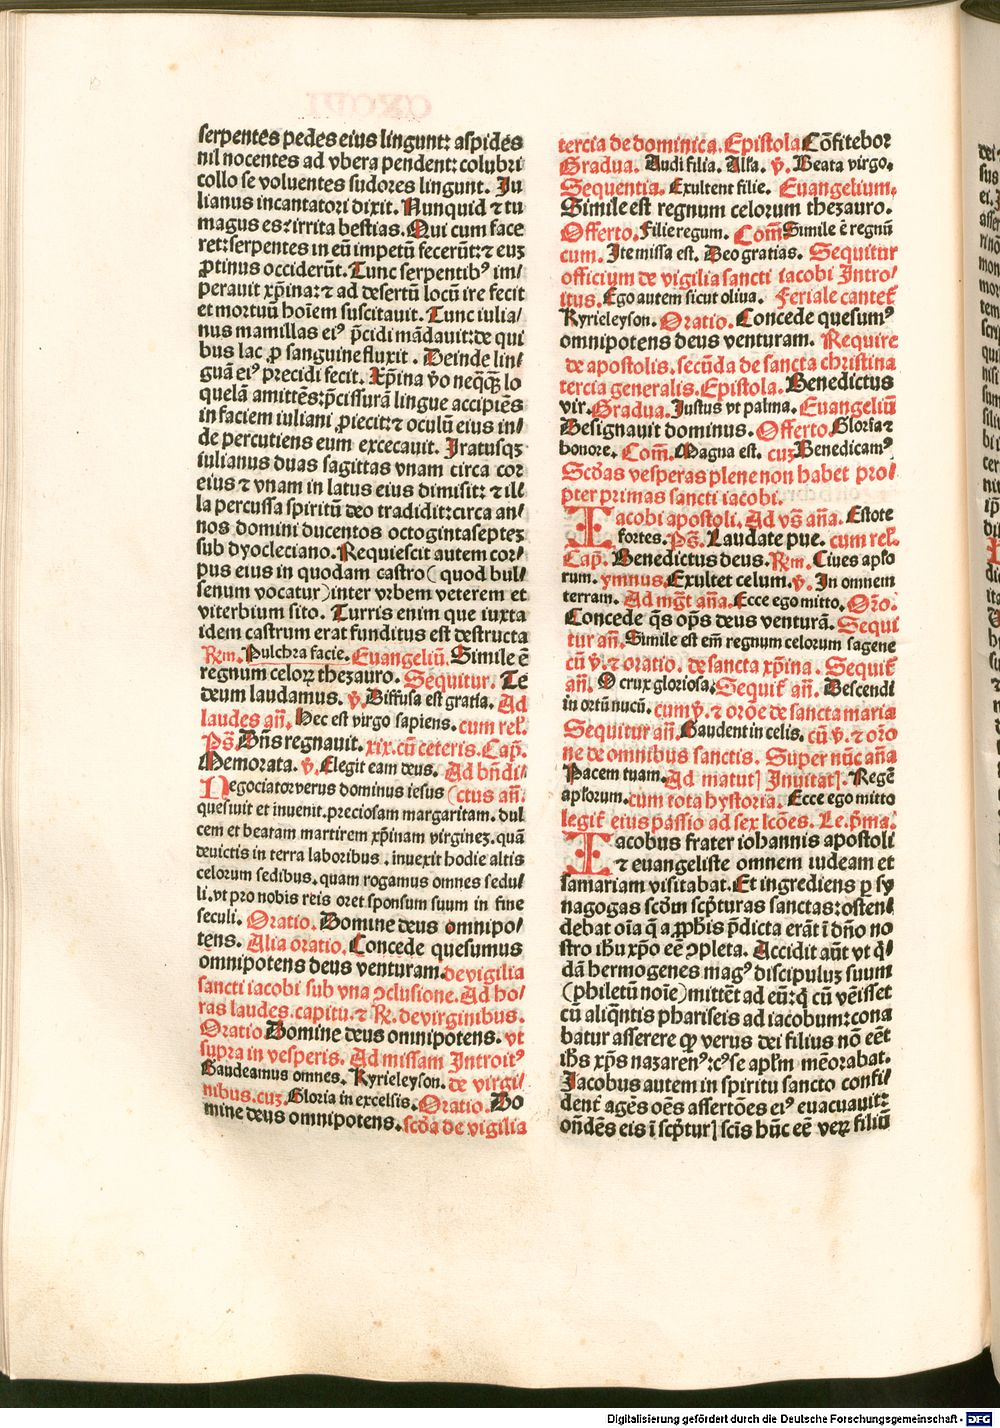 serpentes pedes eius lingunt: aspides
nil nocentes ad vbera pendent: colubri
collo se voluentes sudores lingunt. Ju
lianus incantatori dixit. Nunquid ⁊ tu
magus es: irrita bestias. Qui cum face
ret: serpentes in eū impetū fecerūt: ⁊ euʒ
ꝓtinus occiderūt. Tunc serpentibꝰ im⸗
perauit xp̄ina: ⁊ ad desertū locū ire fecit
et mortuū hoīem suscitauit. Tunc iulia⸗
nus mamillas eiꝰ p̄cidi mādauit: de qui
bus lac ꝓ sanguine fluxit. Deinde lin⸗
guā eiꝰ precidi fecit. Xp̄ina v̄o neq̄q̄ʒ lo
quelā amittēs: p̄cissurā lingue accipiēs
in faciem iuliani ꝓiecit: ⁊ oculū eius in⸗
de percutiens eum excecauit. Jratusqʒ
iulianus duas sagittas vnam circa cor
eius ⁊ vnam in latus eius dimisit: ⁊ il⸗
la percussa spiritū deo tradidit: circa an⸗
nos domini ducentos octogintasepteʒ
sub dyocleciano. Requiescit autem cor⸗
pus eius in quodam castro (quod bul⸗
senum vocatur) inter vrbem veterem et
viterbium sito. Turris enim que iuxta
idem castrum erat funditus est destructa
Rm̄. Pulchra facie. Euangeliū. Simile ē
regnum celoꝝ thezauro. Sequitur. Te
deum laudamus. v̄. Diffusa est gratia. Ad
laudes an̄. Hec est virgo sapiens. cum rel̄.
Ps̄. Dn̄s regnauit. xix. cū ceteris. Cap̄.
Memorata. v̄. Elegit eam deus. Ad bn̄di⸗
Negociator verus dominus iesus (ctus an̄.
quesiuit et inuenit. preciosam margaritam. dul
cem et beatam martirem xp̄inam virgineʒ. quā
deuictis in terra laboribus. inuexit hodie altis
celorum sedibus. quam rogamus omnes sedu⸗
li. vt pro nobis reis oret sponsum suum in fine
seculi. Oratio. Domine deus omnipo⸗
tens. Alia oratio. Concede quesumus
omnipotens deus venturam. de vigilia
sancti iacobi sub vna ↄclusione. Ad ho⸗
ras laudes. capitu. ⁊ R̄. de virginibus.
Oratio Domine deus omnipotens. vt
supra in vesperis. Ad missam Introitꝰ
Gaudeamus omnes. Kyrieleyson. de virgi⸗
nibus. cuʒ. Gloria in excelsis. Oratio. Do
mine deus omnipotens. scd̄a de vigilia
tercia de dominica. Epistola Cōfitebor
Gradua. Audi filia. Alla. v̄. Beata virgo.
Sequentia. Exultent filie. Euangelium.
Simile est regnum celorum thezauro.
Offerto. Filie regum. Com̄ Simile ē regnū
celorum. Ite missa est. Deo gratias. Sequitur
officium de vigilia sancti iacobi Intro⸗
itus. Ego autem sicut oliua. Feriale cantet̄
Kyrieleyson. Oratio. Concede quesumꝰ
omnipotens deus venturam. Require
de apostolis. secūda de sancta christina
tercia generalis. Epistola. Benedictus
vir. Gradua. Justus vt palma. Euangeliū
Designauit dominus. Offerto. Gloria ⁊
honore. Com̄. Magna est. cuʒ Benedicamꝰ
Scd̄as vesperas plene non habet pro⸗
pter primas sancti iacobi.
Iacobi apostoli. Ad vs̄ an̄a. Estote
fortes. Ps̄. Laudate pue. cum rel̄.
Cap̄. Benedictus deus. Rm̄. Ciues aplo
rum. ymnus. Exultet celum. v̄. In omnem
terram. Ad mgt̄ an̄a. Ecce ego mitto. Or̄o.
Concede q̄s op̄s deus venturā. Sequi
tur an̄. Simile est em̄ regnum celorum sagene
cū v̄. ⁊ oratio. de sancta xp̄ina. Sequit̄
an̄. O crux gloriosa. Sequit̄ an̄. Descendi
in ortū nucū. cum v̄. ⁊ orōe de sancta maria
Sequitur an̄. Gaudent in celis. cū v̄. ⁊ oro
ne de omnibus sanctis. Super nūc an̄a
Pacem tuam. Ad matut̄. Inuitat̄. Regē
aplorum. cum tota hystoria. Ecce ego mitto
legit̄ eius passio ad sex lc̄ões. Le. p̄ma.
Iacobus frater iohannis apostoli
⁊ euangeliste omnem iudeam et
samariam visitabat. Et ingrediens ꝑ sy
nagogas scd̄m scp̄turas sanctas: osten⸗
debat oīa q̄ a ꝓphīs p̄dicta erāt ī dn̄o no
stro ih̄u xp̄o eē ↄpleta. Accidit aūt vt q̄⸗
dā hermogenes magꝰ discipuluʒ suum
(philetū noīe) mittēt ad eū: q̄ cū vēisset
cū aliq̄ntis phariseis ad iacobum: cona
batur asserere ꝙ verus dei filius nō eēt
ih̄s xp̄s nazarenꝰ: cꝰ se apl̄m mēorabat.
Jacobus autem in spiritu sancto confi⸗
dent̄ agēs oēs assertōes eiꝰ euacuauit:
on̄dēs eis ī scp̄tur̄ scīs hūc eē veꝝ filiū
Digitalisierung gefördert durch die Deutsche Forschungsgemeinschaft - DFG